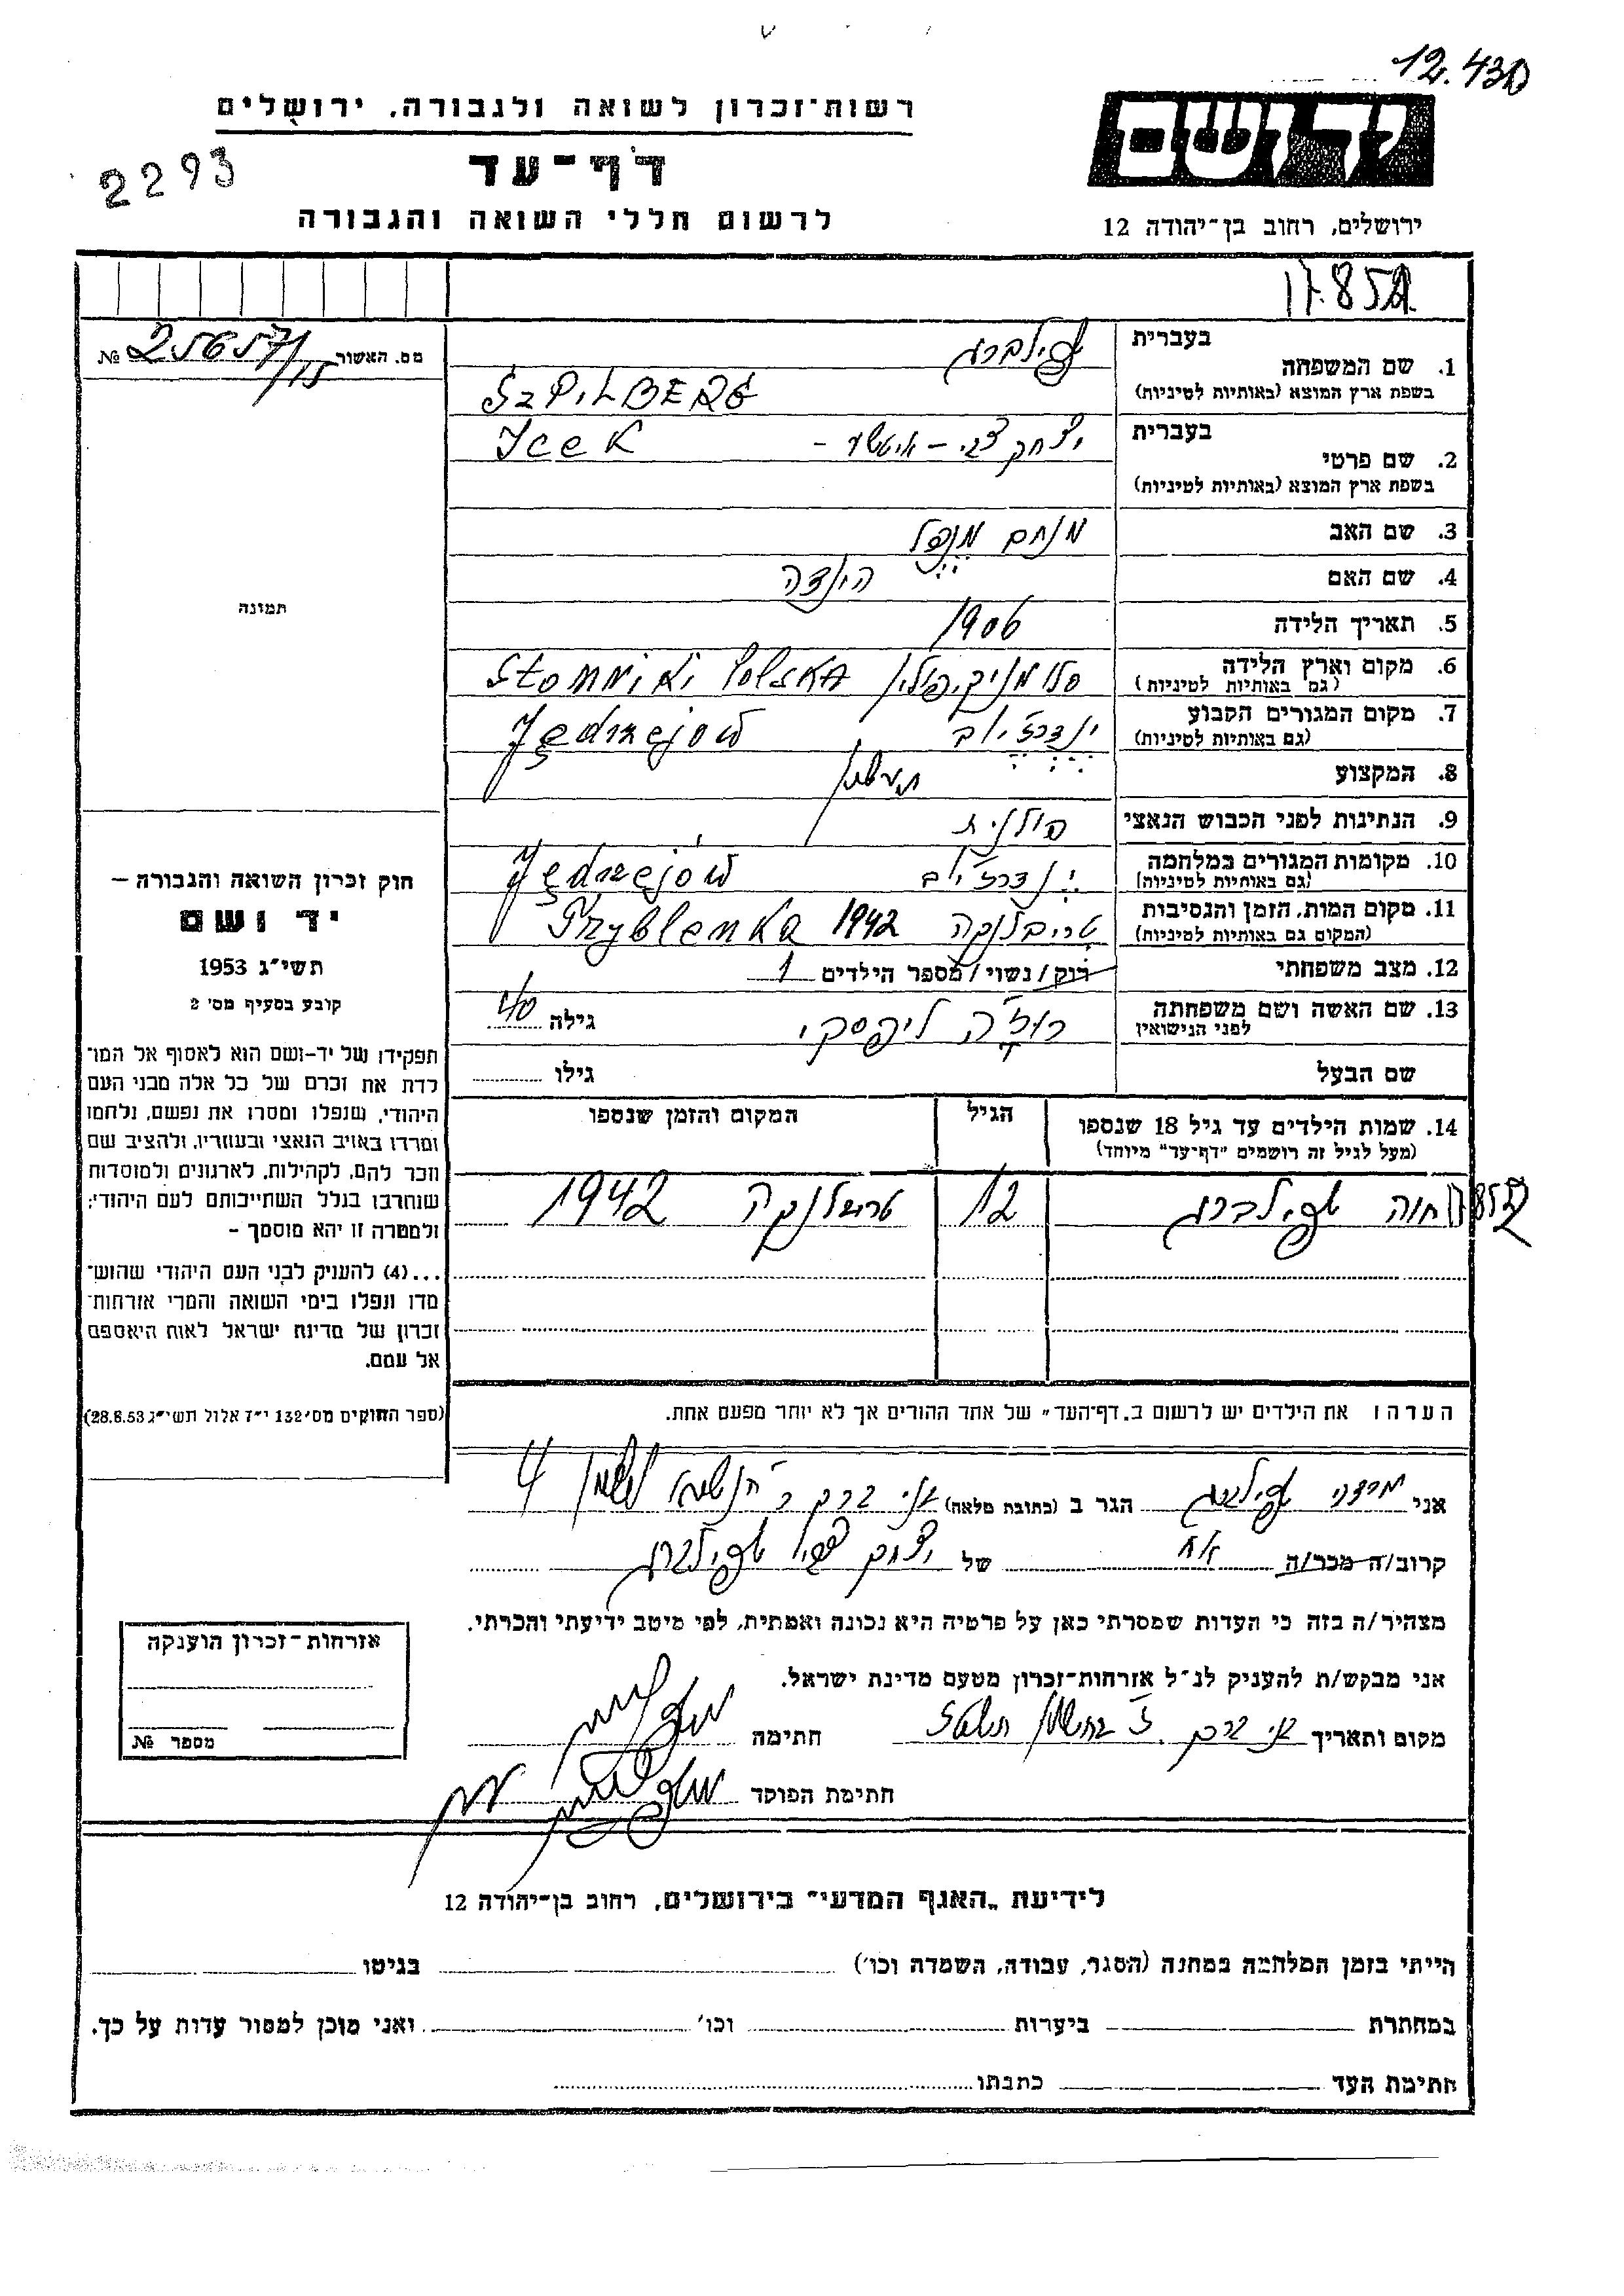 12.430
רשות-זכרון לשואה ולגבורה, ירושלים
2293
דף-עד
לרשום חללי השואה והגבורה
יד ושם
ירושלים, רחוב בן-יהודה 12
מס. האשור № 25657/15
תמונה
חוק זכרון השואה והגבורה –
יד ושם
תשי"ג 1953
קובע בסעיף מס' 2
תפקידו של יד-ושם הוא לאסוף אל המו־
לדת את זכרם של כל אלה מבני העם
היהודי, שנפלו ומסרו את נפשם, נלחמו
ומרדו באויב הנאצי ובעוזריו, ולהציב שם
וזכר להם, לקהילות, לארגונים ולמוסדות
שנחרבו בגלל השתייכותם לעם היהודי;
ולמטרה זו יהא מוסמך –
...(4) להעניק לבני העם היהודי שהוש־
מדו ונפלו בימי השואה והמרי אזרחות־
זכרון של מדינת ישראל לאות היאספם
אל עמם.
(ספר החוקים מס' 132 י"ז אלול תשי"ג 28.8.53)
בעברית שפילברג
1. שם המשפחה
בשפת ארץ המוצא (באותיות לטיניות) SZPILBERG
בעברית יצחק צבי – איטשע – Icek
2. שם פרטי
בשפת ארץ המוצא (באותיות לטיניות)
3. שם האב מנחם מנדל
4. שם האם הינדה
5. תאריך הלידה 1906
6. מקום וארץ הלידה סלומניקי, פולין Słomniki Polska
(גם באותיות לטיניות)
7. מקום המגורים הקבוע ינדרז'יוב Jędrzejów
(גם באותיות לטיניות)
8. המקצוע
9. הנתינות לפני הכבוש הנאצי פולנית
10. מקומות המגורים במלחמה ינדרז'יוב Jędrzejów
(גם באותיות לטיניות)
11. מקום המות, הזמן והנסיבות טריבלנקה 1942 Tryblenka
(המקום גם באותיות לטיניות)
12. מצב משפחתי רוק/נשוי/מספר הילדים 1
13. שם האשה ושם משפחתה רוז'ה ליפסקי גילה 40
לפני הנישואין
שם הבעל גילו
14. שמות הילדים עד גיל 18 שנספו הגיל המקום והזמן שנספו
(מעל לגיל זה רושמים "דף-עד" מיוחד)
חוה שפילברג 12 טרבלנקה 1942
הערה: את הילדים יש לרשום ב"דף-העד" של אחד ההורים אך לא יותר מפעם אחת.
אני מרדכי שפילברג הגר ב (כתובת מלאה) בני ברק
קרוב/ה מכר/ה אח של יצחק צבי שפילברג
מצהיר/ה בזה כי העדות שמסרתי כאן על פרטיה היא נכונה ואמתית, לפי מיטב ידיעתי והכרתי.
אני מבקש/ת להעניק לנ"ל אזרחות-זכרון מטעם מדינת ישראל.
מקום ותאריך בני ברק חתימה
חתימת הפוקד
אזרחות-זכרון הוענקה
מספר №
לידיעת "האגף המדעי" בירושלים, רחוב בן-יהודה 12
הייתי בזמן המלחמה במחנה (הסגר, עבודה, השמדה וכו') בגיטו
במחתרת ביערות וכו' ואני מוכן למסור עדות על כך.
חתימת העד כתבתו